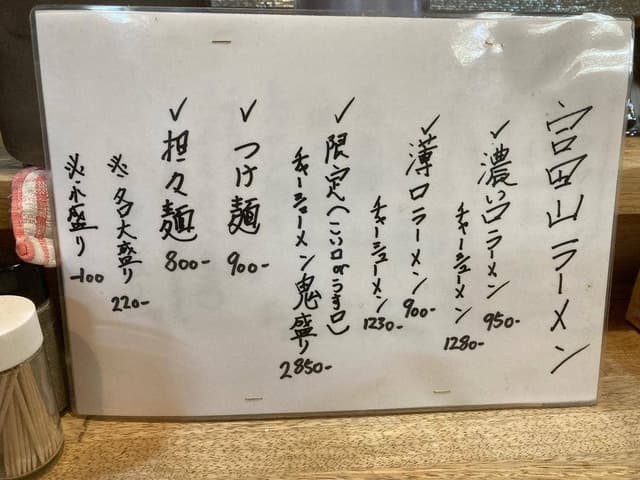 宮田山ラーメン
✓濃い口ラーメン 950-
チャーシューメン 1280-
✓薄口ラーメン 900-
チャーシューメン 1230-
✓限定(こい口orうす口)
チャーシューメン鬼盛り 2850-
✓つけ麺 900-
✓担々麺 800-
※各大盛り 220-
※小盛り -100